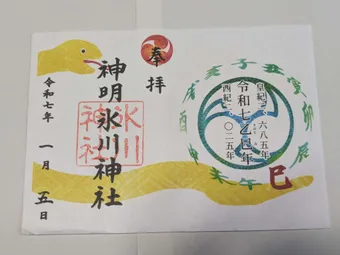 子丑寅卯辰巳午未申酉戌亥
皇紀二六八五年
令和七乙巳年
西紀二〇二五年
奉拝
神明氷川神社
氷川
神社
令和七年 一月 五日